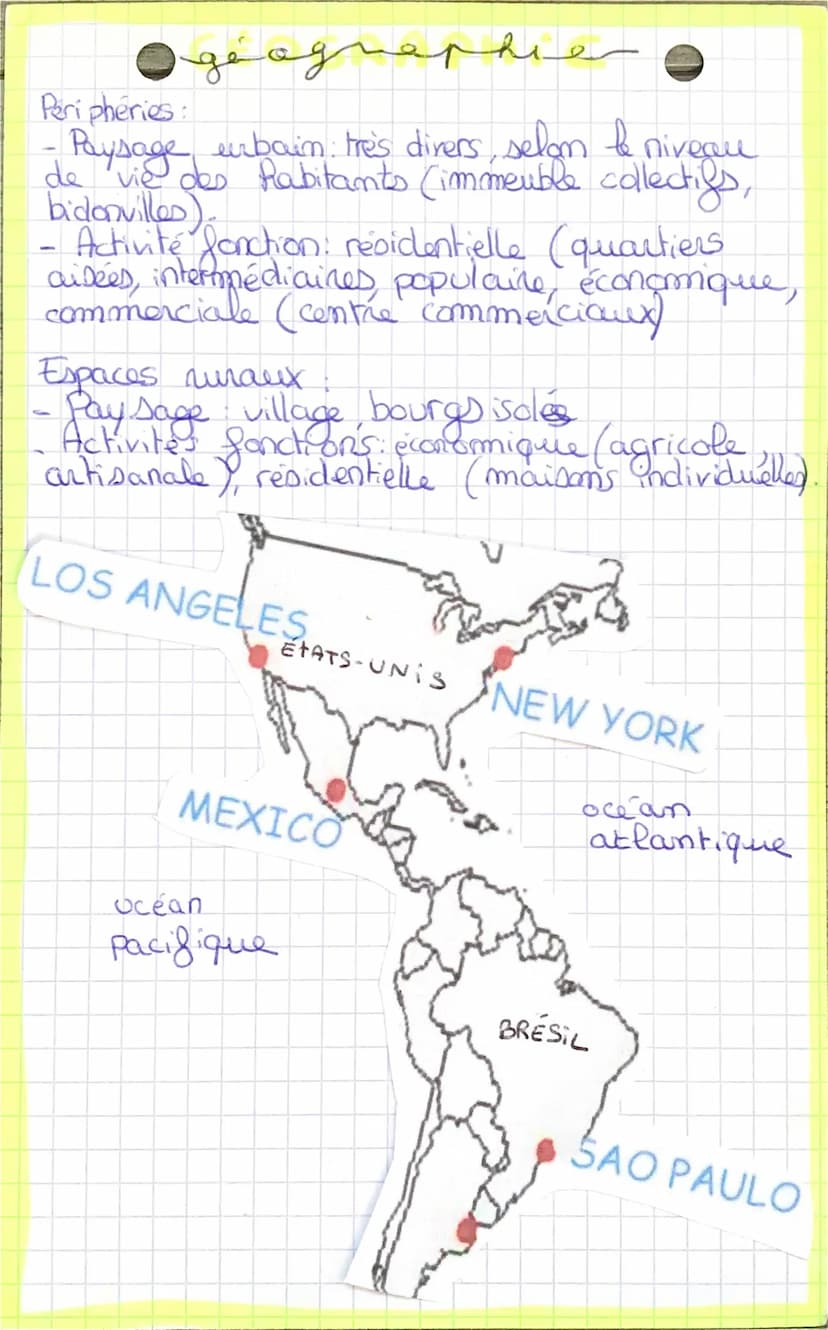 géographie
Périphéries :
- Paysage urbain : très divers, selon le niveau
de vie des habitants (immeuble collectifs,
bidonvilles).
- Activité fonction : résidentielle (quartiers
aisées, intermédiaires, populaire, économique,
commerciale (centre commerciaux)
Espaces ruraux :
- Paysage : village, bourgs isolés
- Activités fonctions : économique (agricole,
artisanale), résidentielle (maisons individuelles).
LOS ANGELES
ÉTATS-UNIS
NEW YORK
MEXICO
océan
atlantique
océan
pacifique
BRÉSIL
SAO PAULO